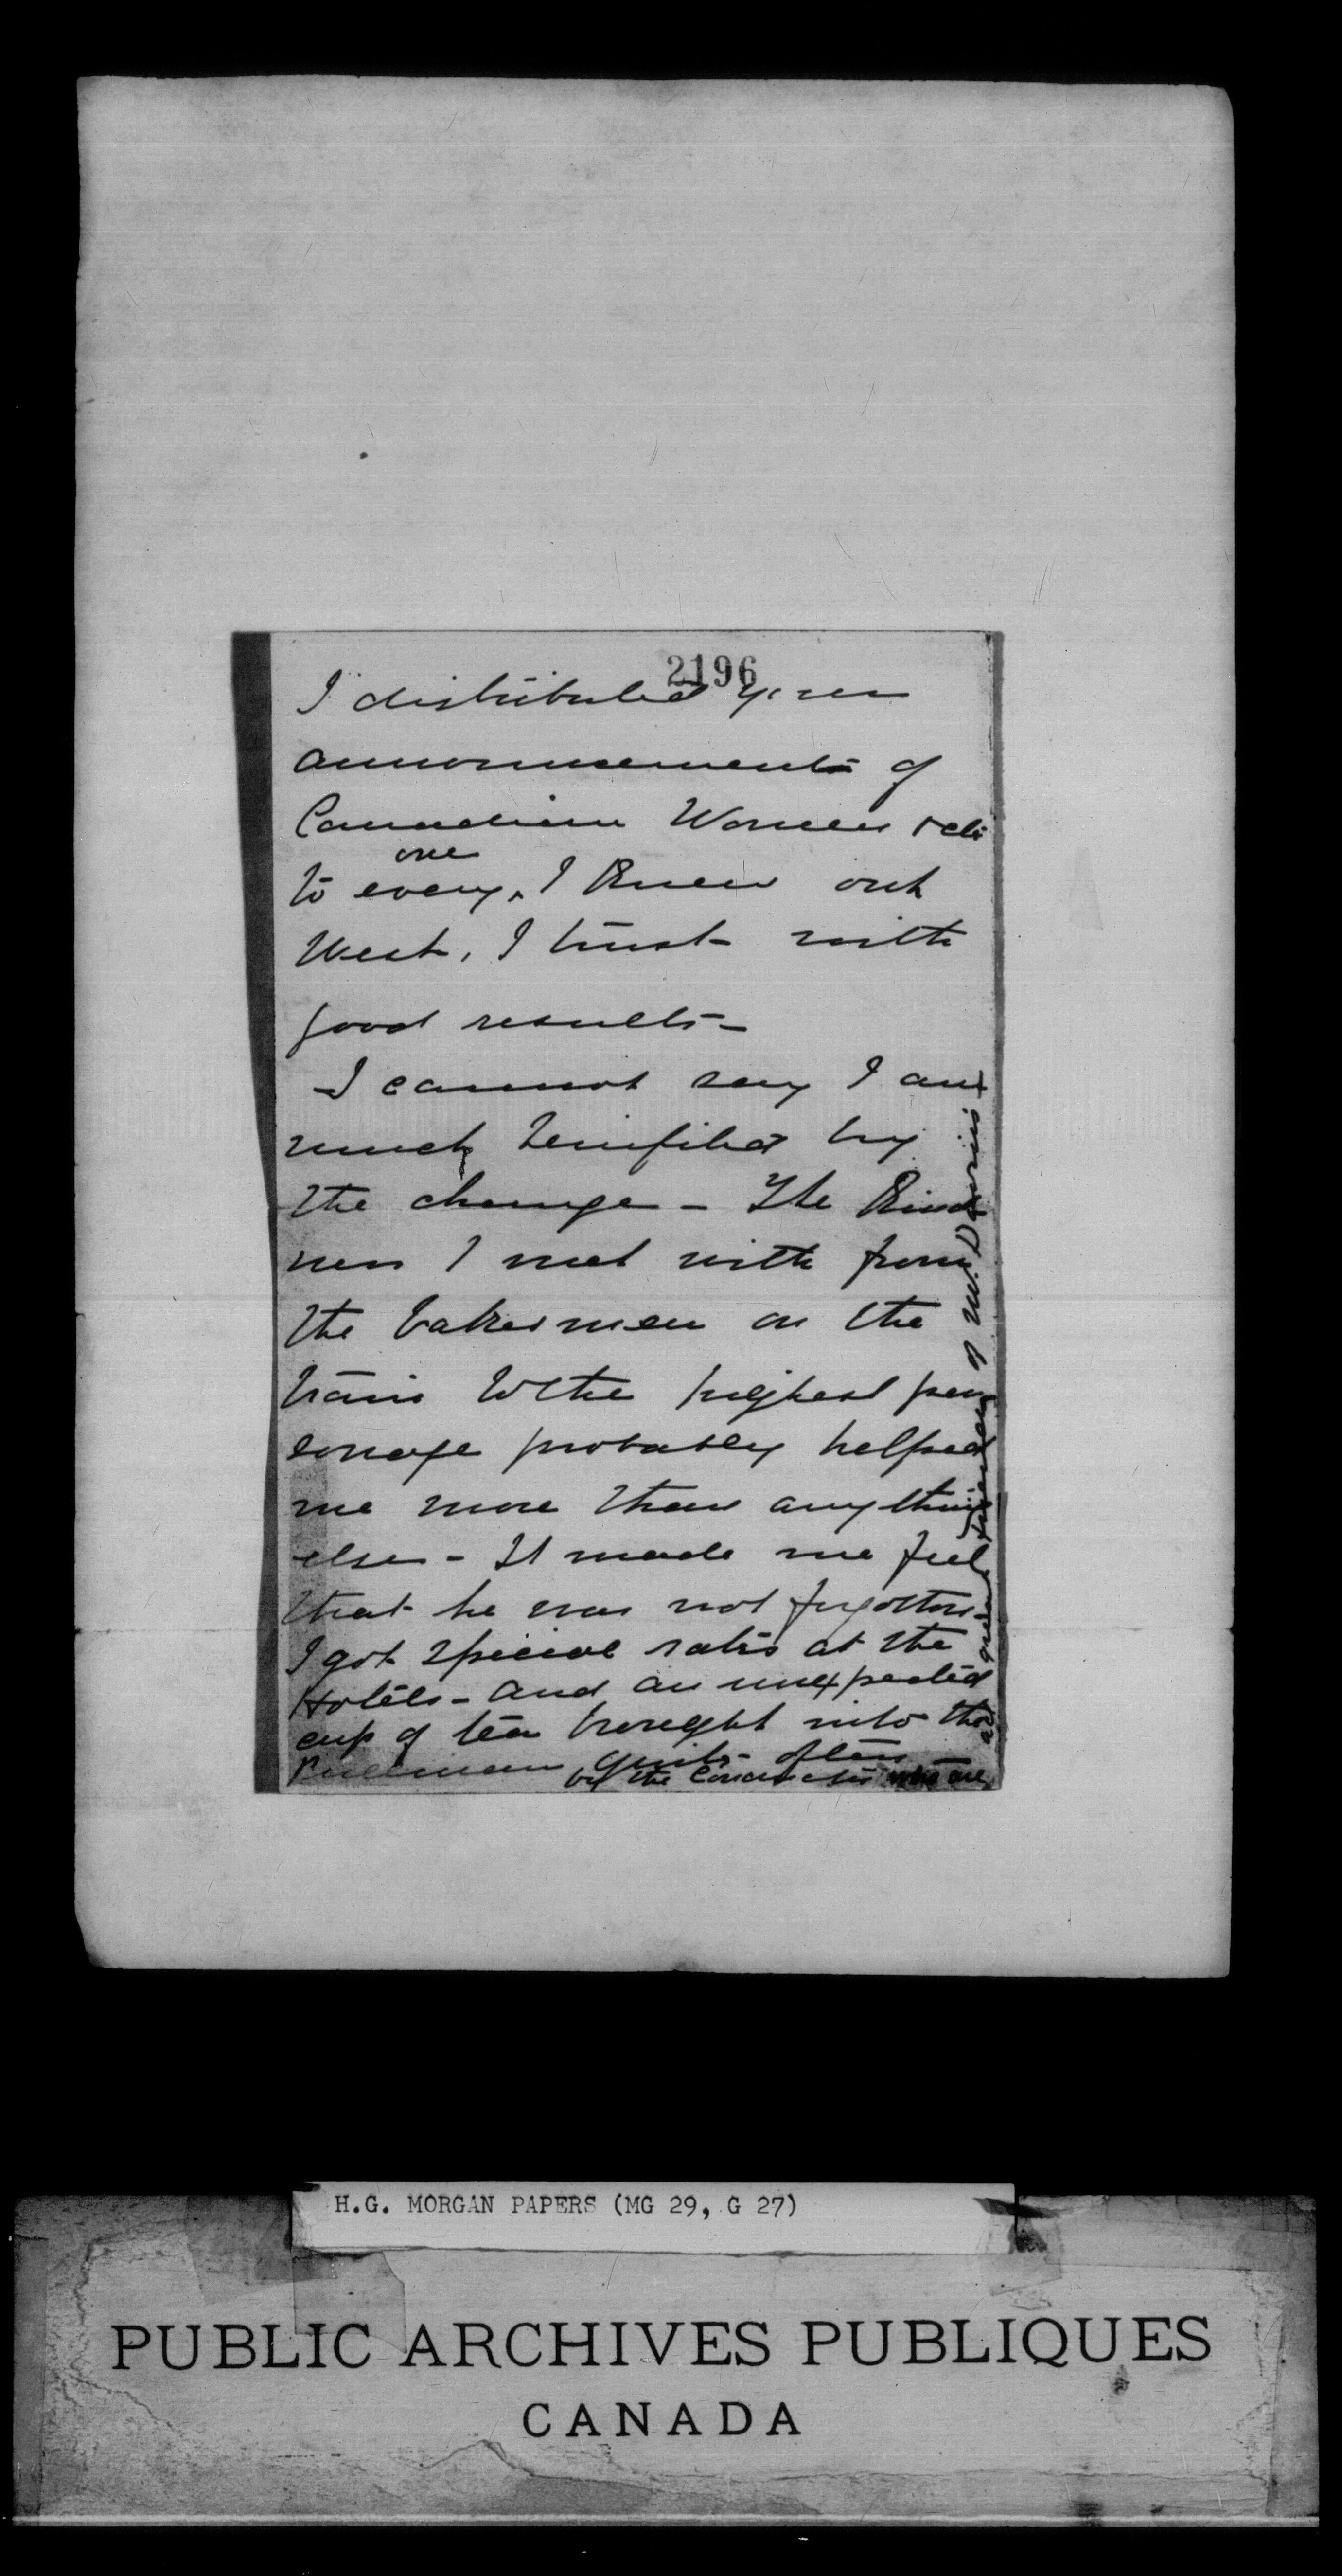 2196
I distributed your
announcements of
Canadian Women &c
to every one I knew out
West, I trust with
good results -
I cannot say I am
much benefited by
the change - The Kind
ness I met with from
the brakesmen on the
train to the highest per
sonage probably helped
me more than anything
else - It made me feel
that he was not forgotten -
I got special rates at the
Hotels - and an unexpected
cup of tea brought into the
Pullman quite often
by the Conductor who are
all great friends of Mr.
H.G. MORGAN PAPERS (MG 29, G 27)
PUBLIC ARCHIVES PUBLIQUES
CANADA